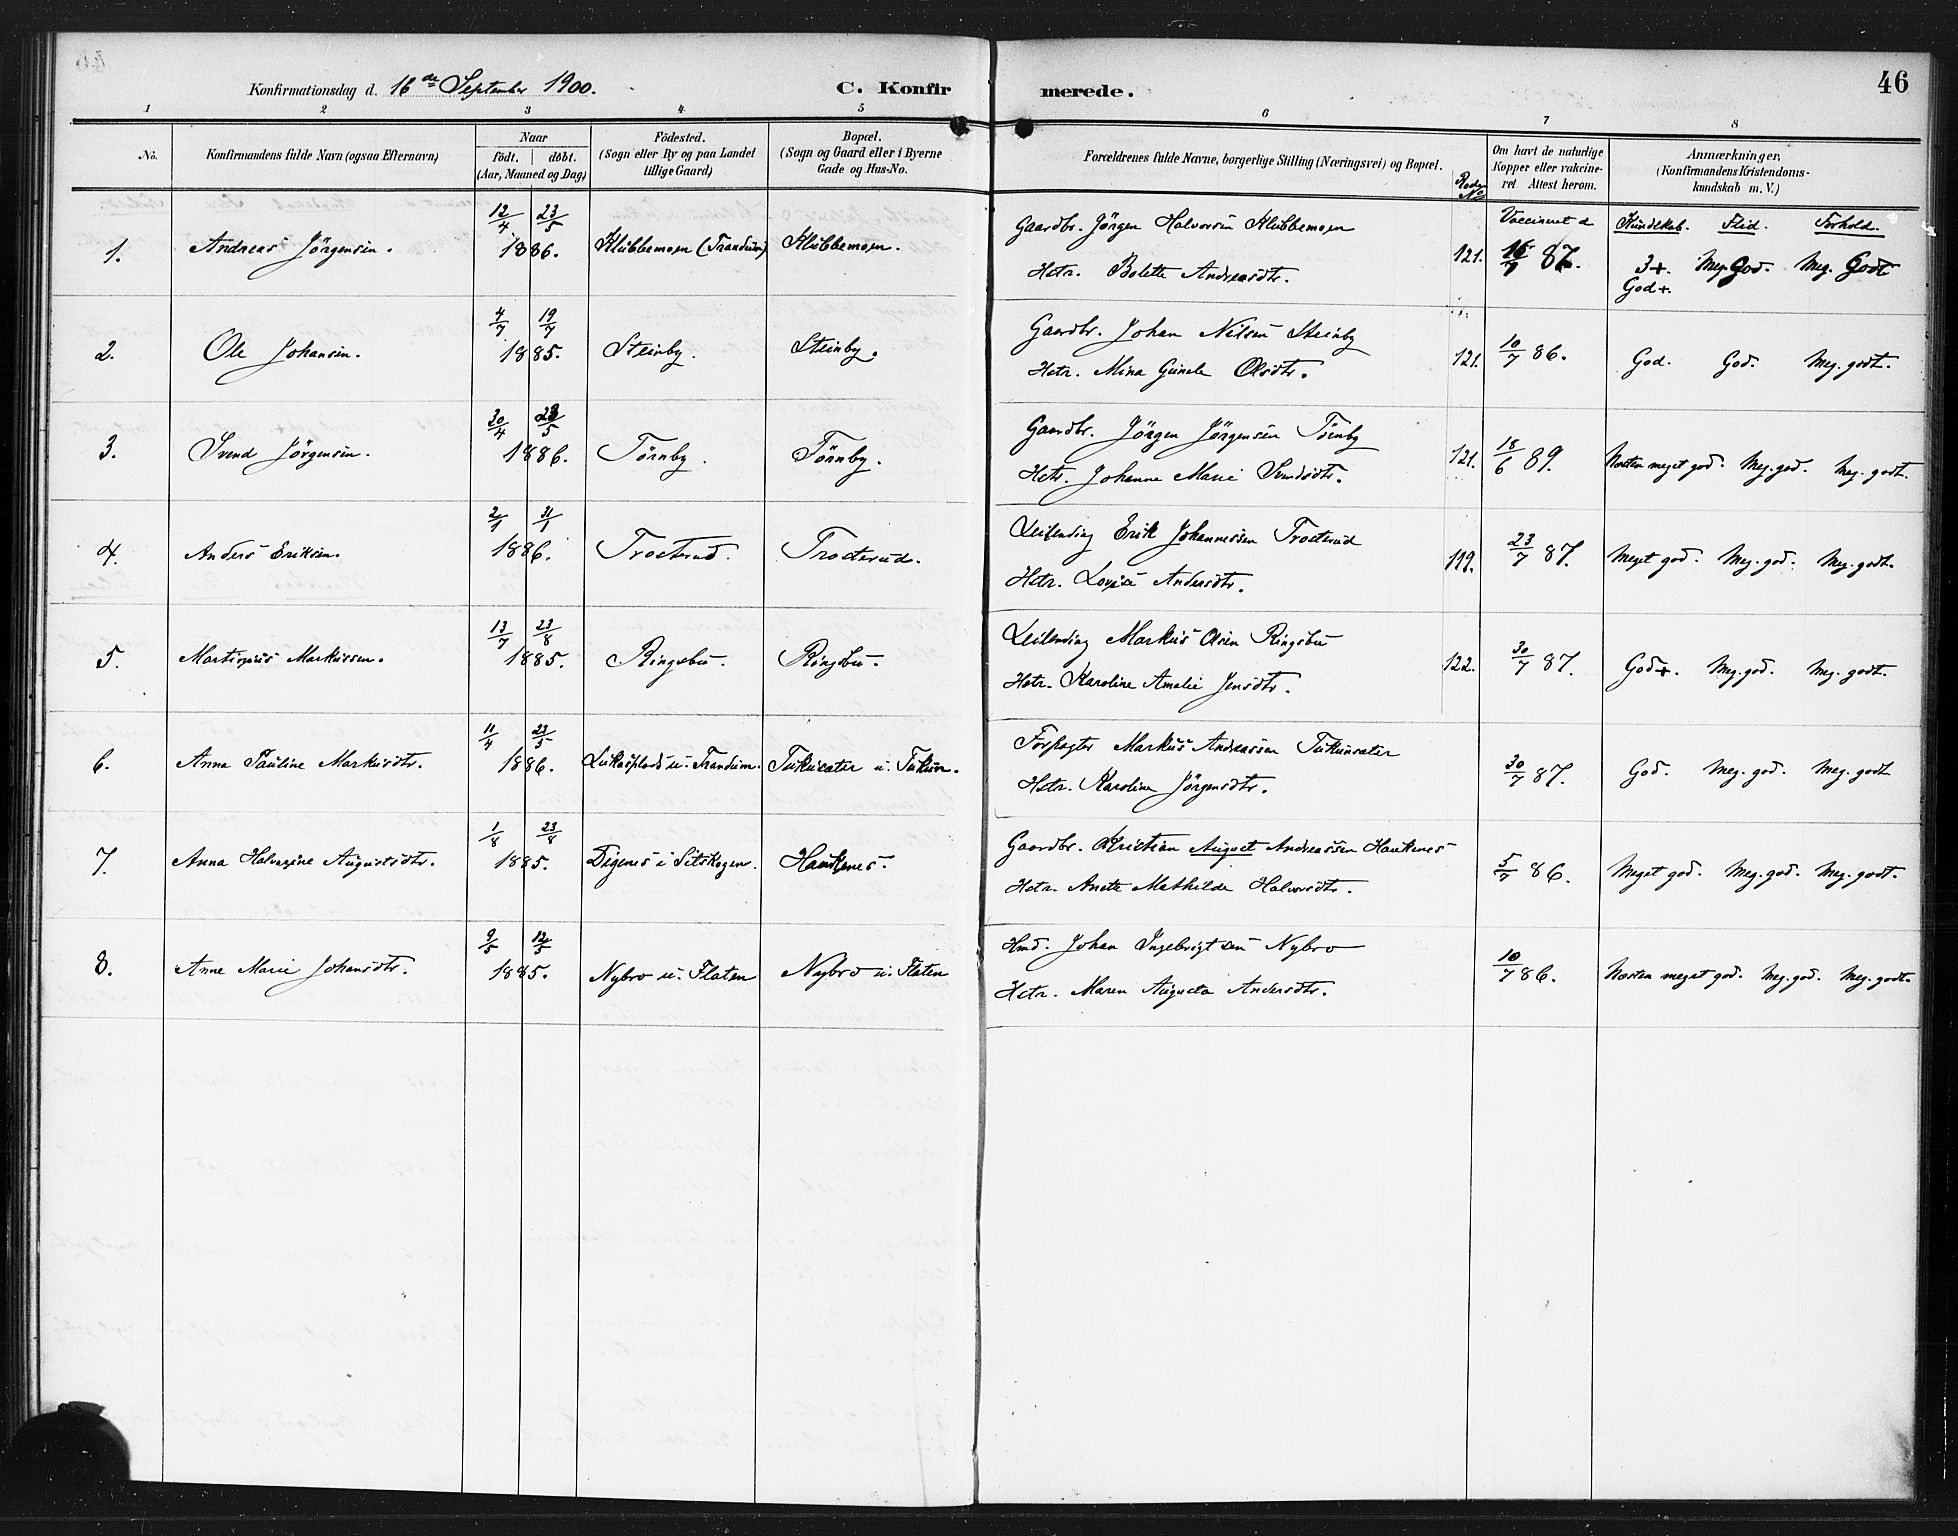 46
Konfirmationsdag d. 16de September 1900. C. Konfirmerede.
1 2 3 4 5 6 7 8
No.
Konfirmandens fulde Navn (ogsaa Efternavn)
Naar
födt. | döbt.
(Aar, Maaned og Dag)
Födested.
(Sogn eller By og paa Landet
tillige Gaard)
Bopæl.
(Sogn og Gaard eller i Byerne
Gade og Hus-No.
Forældrenes fulde Navne, borgerlige Stilling (Næringsvei) og Bopæl.
Roden No
Om havt de naturlige
Kopper eller vakcine-
ret Attest herom.
Anmærkninger.
(Konfirmandens Kristendoms-
kundskab m. V.)
Vaccineret d
Kundskab. Flid. Forhold.
1. Andreas Jörgensen. 12/4 23/5 1886. Klubbemoen (Trandum) Klubbemoen.
Gaardbr. Jörgen Halvorsen Klubbemoen
Hstr. Bolette Andreasdtr.
121. 16/7 87. 3+. God+. Meg. God. Meg. Godt
2. Ole Johansen. 4/7 19/7 1885. Steinby. Steinby.
Gaardbr. Johan Nilsen Steinby
Hstr. Mina Gunele Olsdtr.
121. 10/7 86. God. God. Meg. godt.
3. Svend Jörgensen. 30/4 23/5 1886. Törnby. Törnby.
Gaardbr. Jörgen Jörgensen Törnby
Hstr. Johanne Marie Svendsdtr.
121. 18/6 89. Næsten meget god. Meg. god. Meg. godt.
4. Anders Eriksen. 2/1 31/1 1886. Trosterud. Trosterud.
Leilending Erik Johannessen Trosterud
Hstr. Lovise Andersdtr.
119. 23/7 87. Meget god. Meg. god. Meg. godt.
5. Martinius Markussen. 13/7 23/8 1885. Ringsbu. Ringsbu.
Leilending Markus Olsen Ringsbu
Hstr. Karoline Amalie Jensdtr.
122. 30/7 87. God+. Meg. god. Meg. godt.
6. Anna Pauline Markusdtr. 11/4 23/5 1886. Lukasplads u. Trandum. Tukusater u. Tukun.
Forpagter Markus Andreassen Tukunsater
Hstr. Karoline Jörgensdtr.
30/7 87. God. Meg. god. Meg. godt
7. Anna Halvorine Augustsdtr. 1/8 23/8 1885. Digenes i Setskogen. Haukenes.
Gaardbr. Kristian August Andreassen Haukenes
Hstr. Anete Mathilde Halvorsdtr.
5/7 86. Meget god. Meg. god. Meg. godt.
8. Anne Marie Johansdtr. 9/5 12/5 1885. Nybro u. Flaten Nybro u. Flaten
Hmd. Johan Ingebrigtsen Nybro
Hstr. Maren Augusta Andersdtr.
10/7 86. Næsten meget god. Meg. god. Meg. godt.